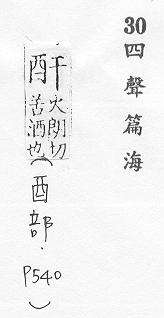 30 四聲篇海
酐 火朗切
苦酒也
(酉部．P540)